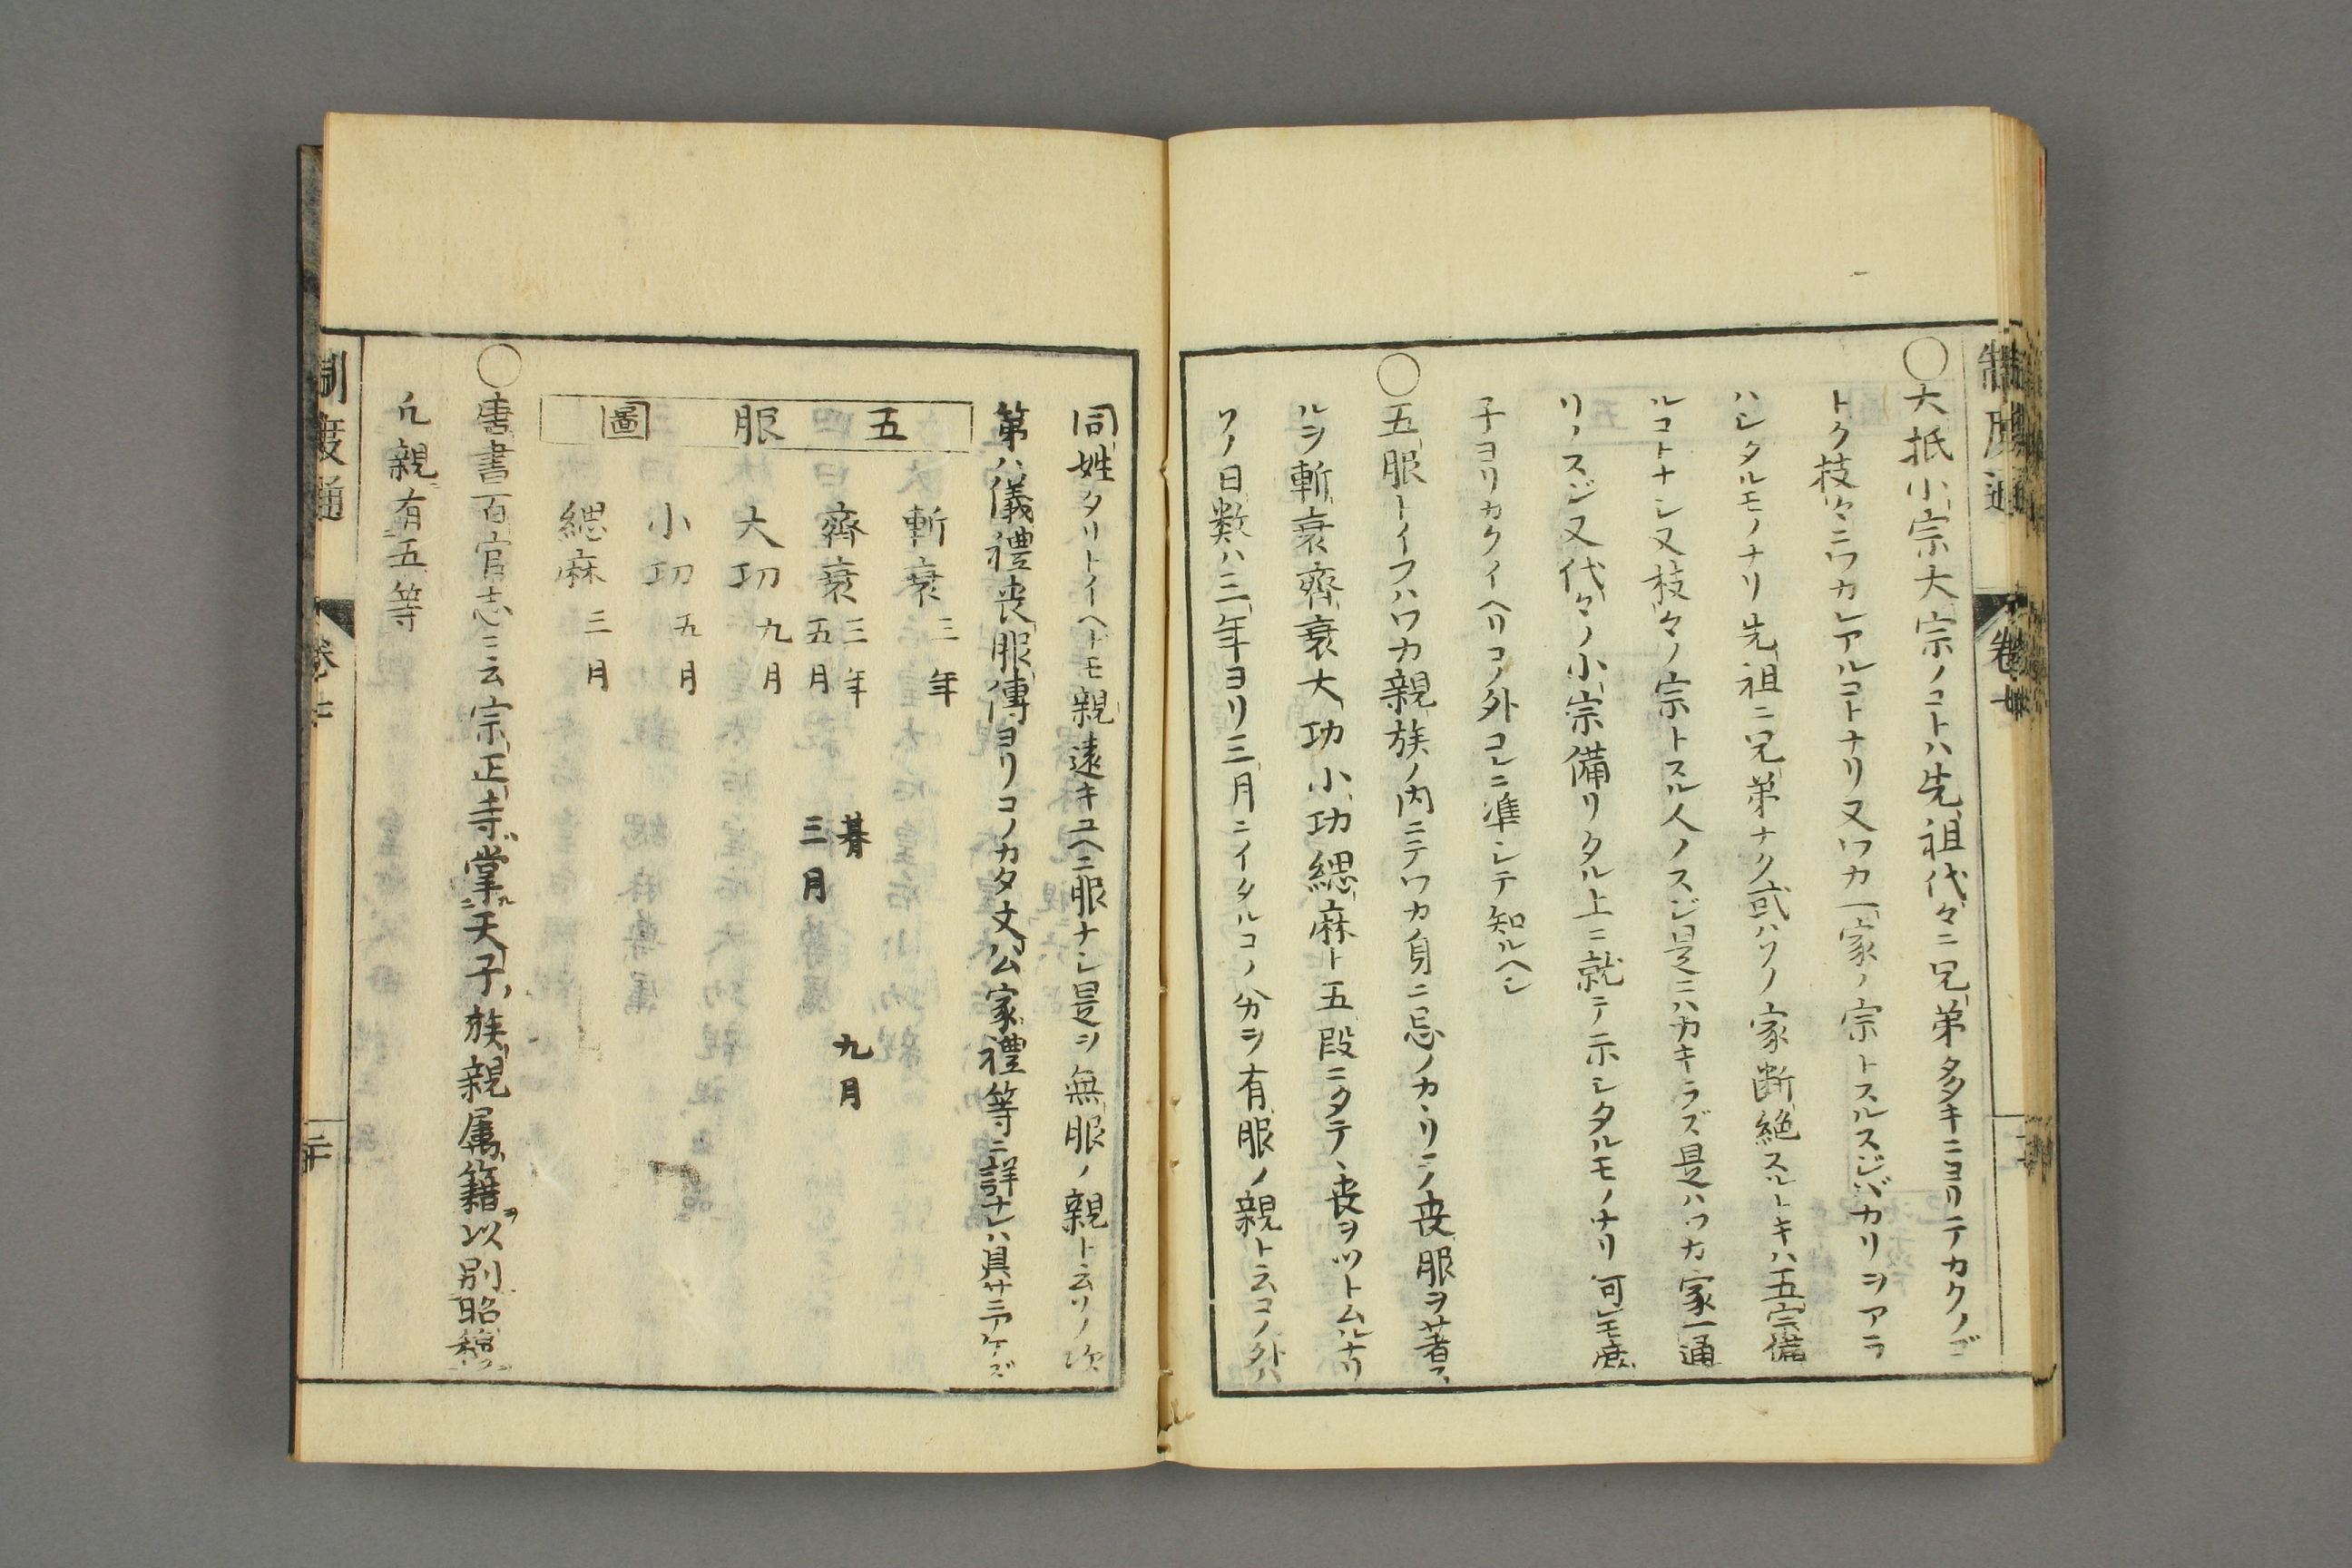 ○大抵小宗大宗ノコトハ先祖代々ニ兄弟多キニヨリテカクノゴ
トク枝々ニワカレアルコトナリ又ワカ一家ノ宗トスルスジバカリヲアラ
ハシタルモノナリ先祖ニ兄弟ナク或ハソノ家断絶スルトキハ五宗備
ルコトナシ又枝々ノ宗トスル人ノスジ是ニハカキラズ是ハワカ家一通
リノスジ又代々ノ小宗備リタル上ニ就テ示シタルモノナリ何レモ庶
子ヨリカクイヘリコノ外コレニ準シテ知ルヘシ
○五服トイフハワカ親族ノ内ニテワカ身ニ忌ノカヽリテノ喪服ヲ著ス
ルヲ斬衰齊衰大功小功緦麻ト五段ニタテヽ喪ヲツトムルナリ
ソノ日数ハ三年ヨリ三月ニイタルコノ分ヲ有服ノ親ト云コノ外ハ
同姓タリトイヘドモ親遠キユヘニ服ナシ是ヲ無服ノ親ト云ソノ次
第ハ儀禮喪服傳ヨリコノカタ文公家禮等ニ詳ナレハ具サニアケズ
五服圖
斬衰 三年
齊衰 三年 朞 九月
五月 三月
大功 九月
小功 五月
緦麻 三月
○唐書百官志ニ云宗正寺掌天子族親属籍ヲ以別昭穆
凡親有五等
制度通 卷七 二十